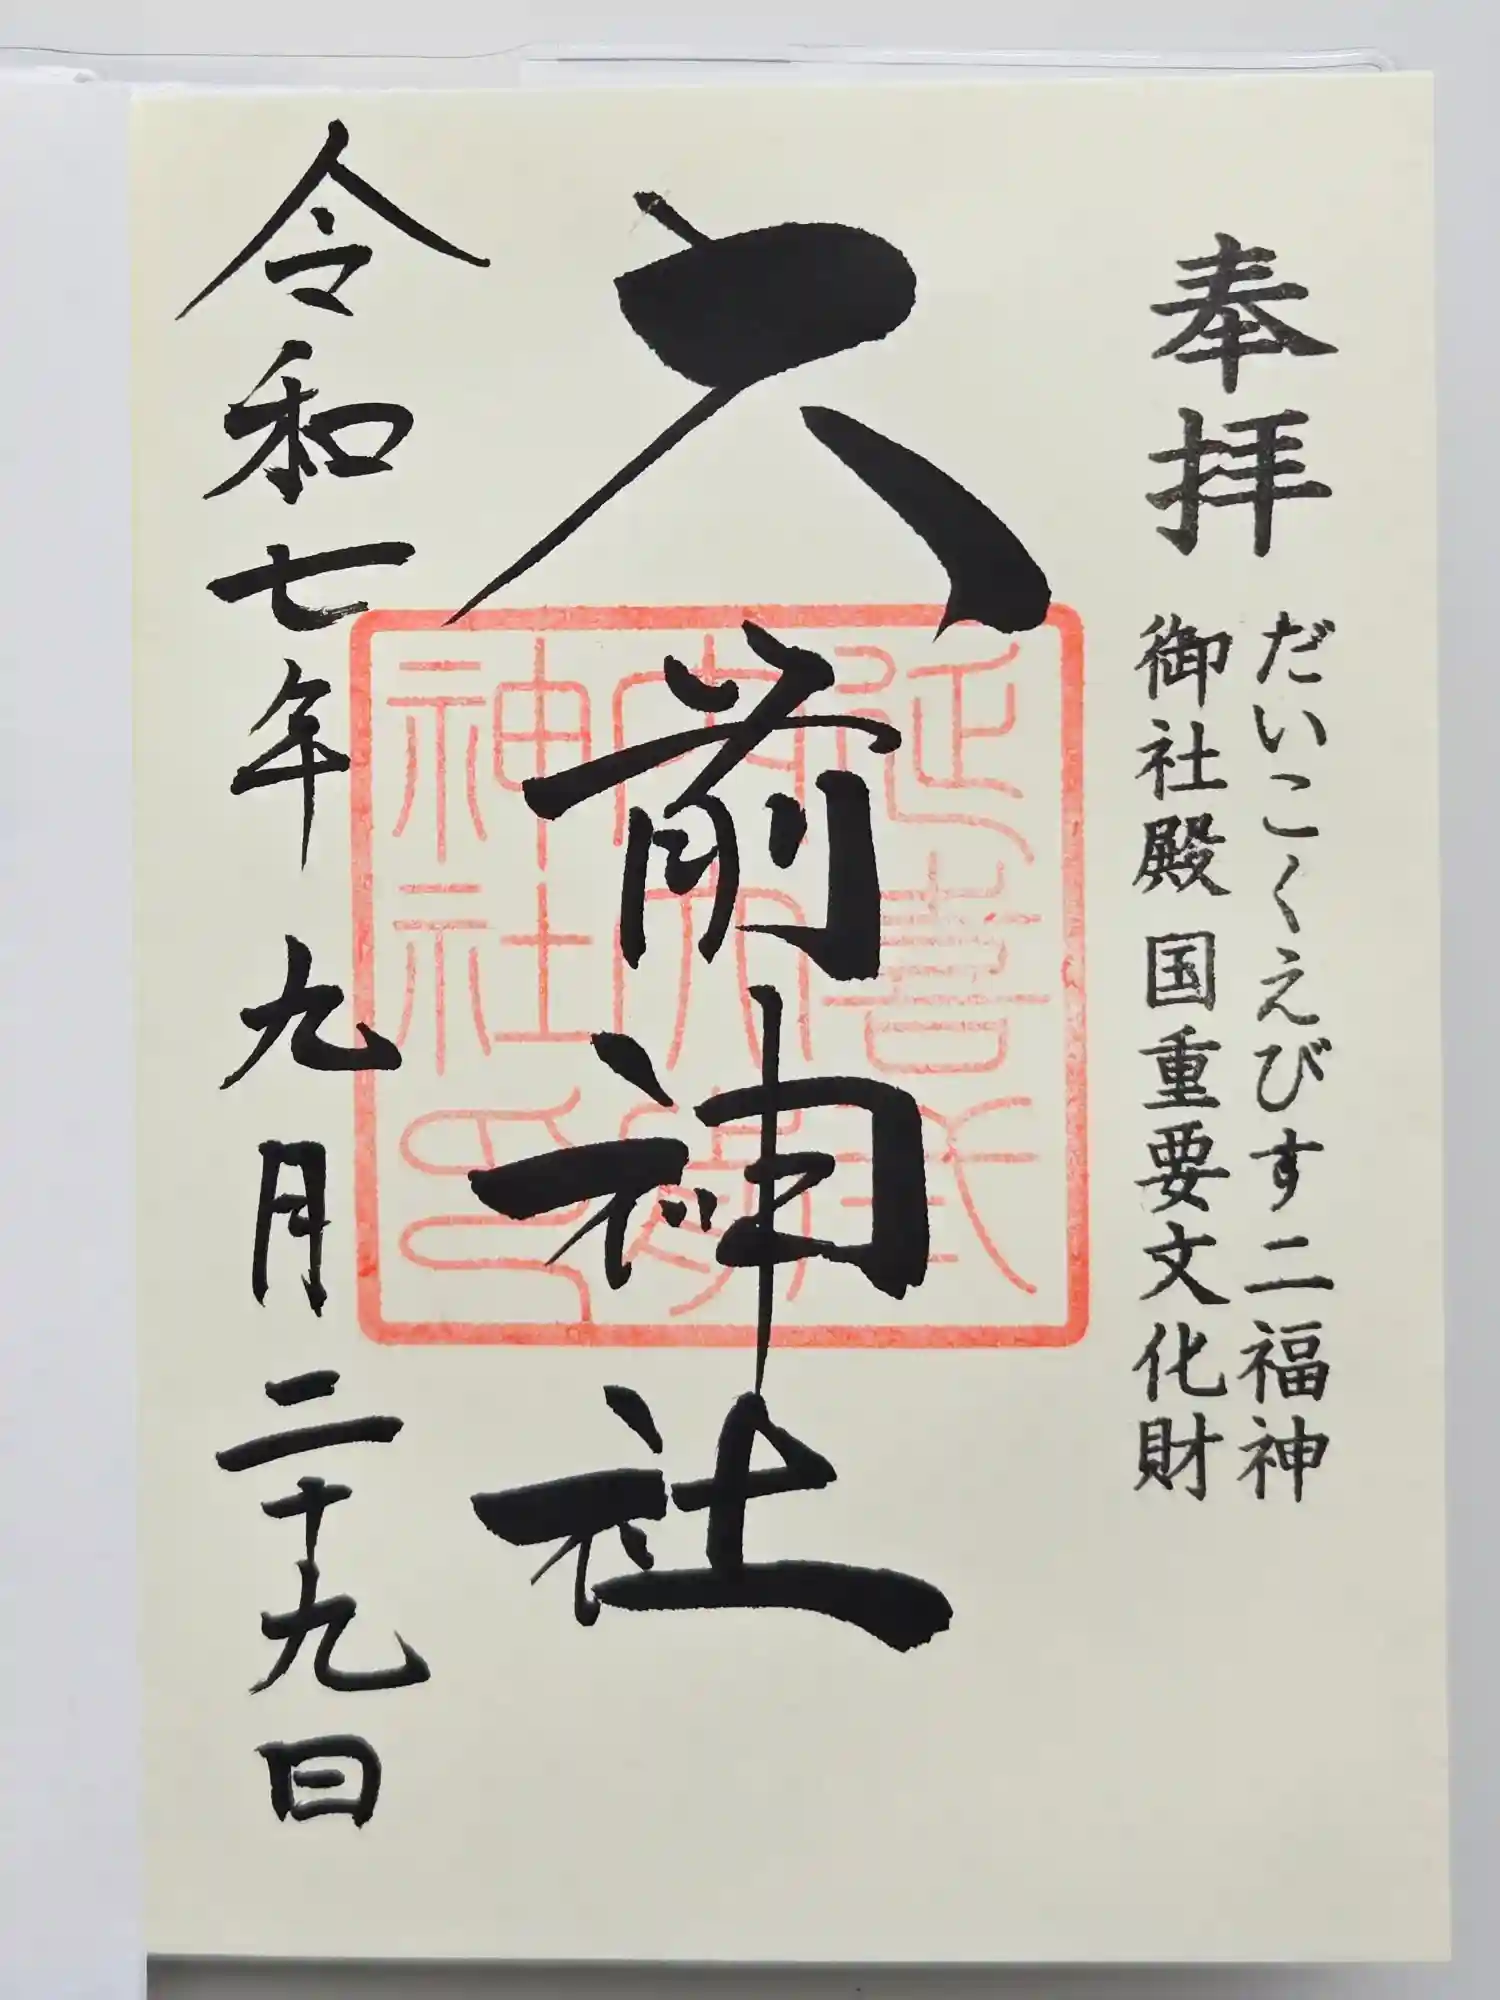 奉拝
だいこくえびす二福神
御社殿 国重要文化財
大前神社
延喜式
内大前
神社印
令和七年 九月二十九日